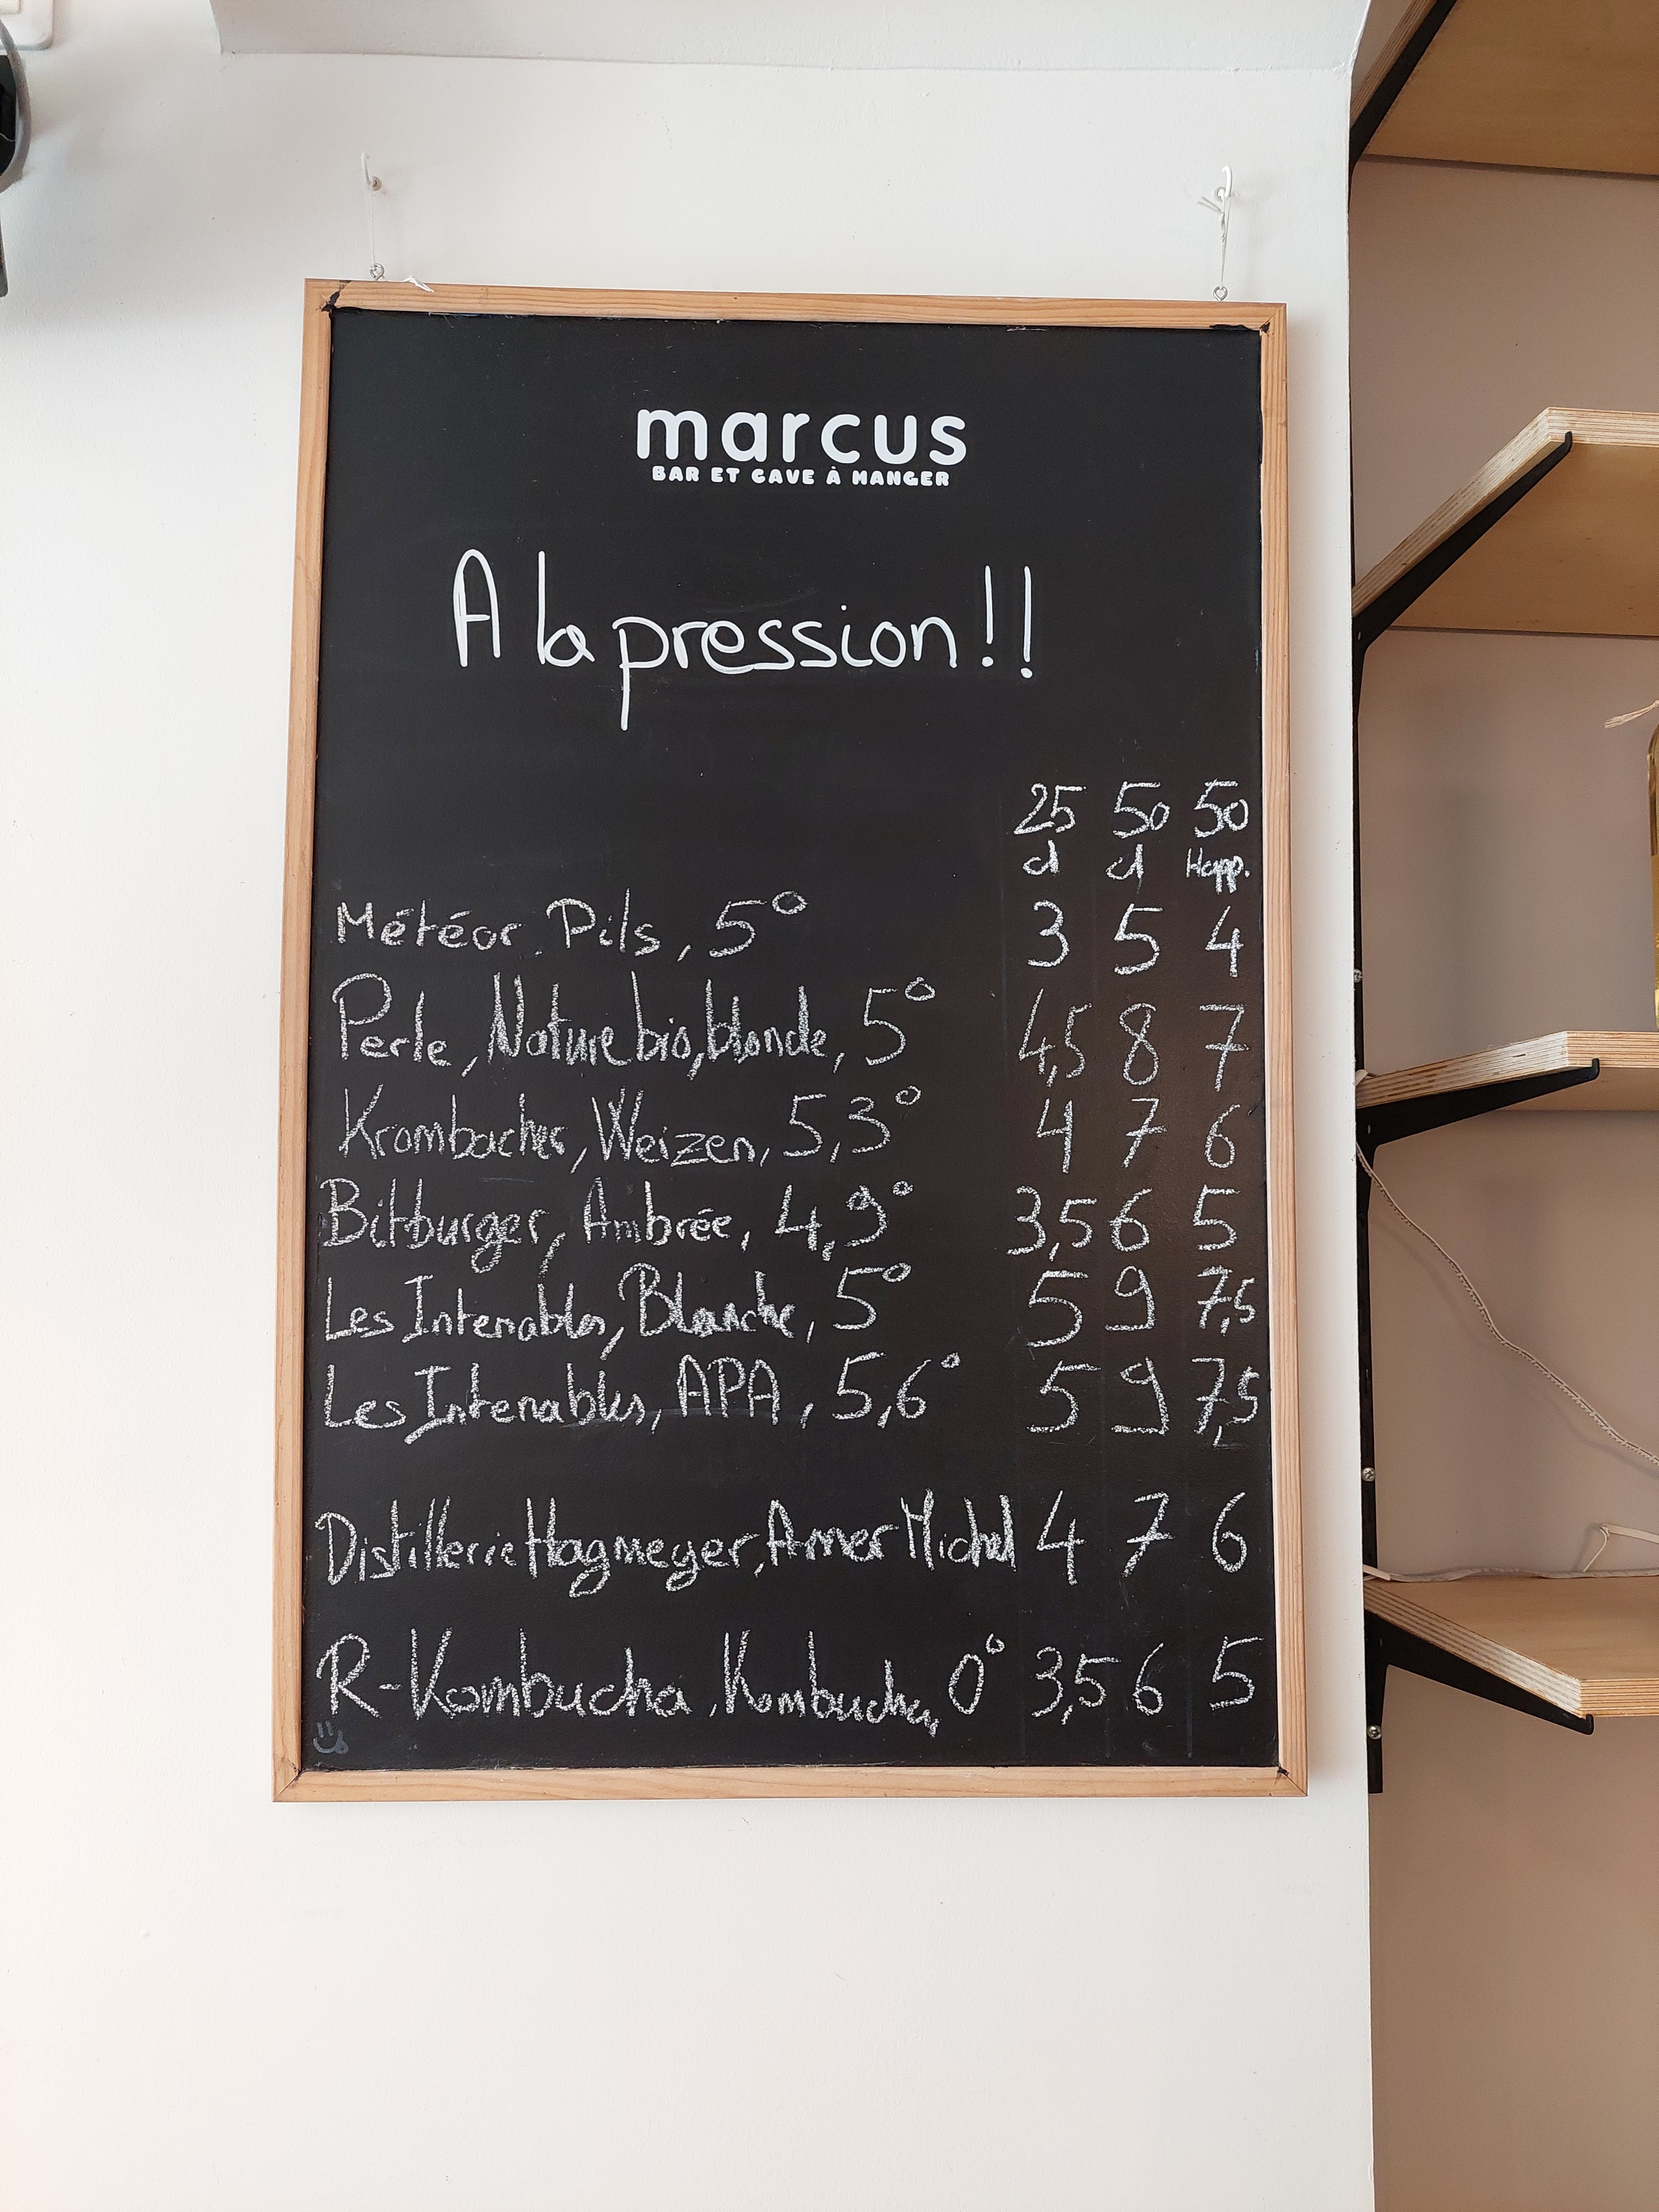 marcus
BAR ET CAVE À MANGER
A la pression !!
25 50 50
cl cl Happ.
Météor Pils, 5° 3 5 4
Perle, Nature bio, blonde, 5° 4,5 8 7
Krombacher, Weizen, 5,3° 4 7 6
Bitburger, Ambrée, 4,9° 3,5 6 5
Les Intenables, Blanche, 5° 5 9 7,5
Les Intenables, APA, 5,6° 5 9 7,5
Distillerie Hagmeyer, Amer Michel 4 7 6
R-Kombucha, Kombucha, 0° 3,5 6 5